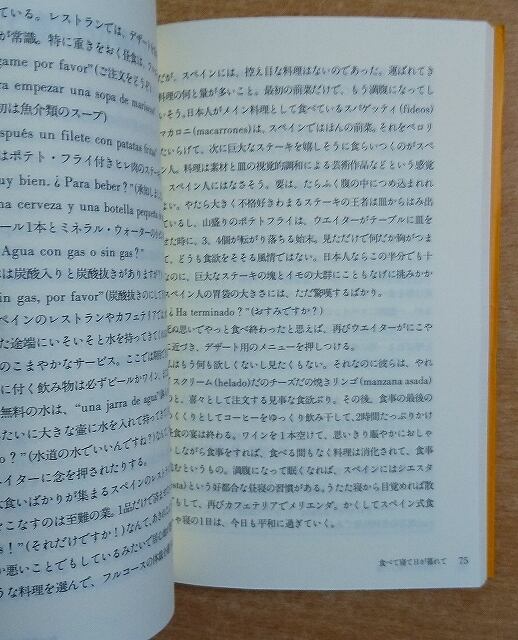 ている。レストランでは、デザート
が常識。特に重きをおく昼食は、
game por favor”(ご注文をどうぞ
ra empezar una sopa de mariscos
初は魚介類のスープ)
spués un filete con patatas fritas
はポテト・フライ付きヒレ肉のステーキ
uy bien. ¿Para beber?”(承知しまし
na cerveza y una botella pequeña
ール1本とミネラル・ウォーターの
Agua con gas o sin gas?”
は炭酸入りと炭酸抜きがありますが
sin gas, por favor”(炭酸抜きのにして
ペインのレストランやカフェテリアでは
た途端にいそいそと水を持ってきてくれ
のこまやかなサービス。ここでは期待
に付く飲み物は必ずビールかワイン、
無料の水は、“una jarra de agua”
みたいに大きな壺に水を入れて持ってきて
o?”(水道の水でいいんですね?)なんて
エイターに念を押されたりする。
大食いばかりが集まるスペインのレスト
こなすのは至難の業。1品だけで済ませ
s!”(それだけですか!)なんて、あきれ
か悪いことでもしているみたいで居心地
うな料理を選んで、フルコースの体裁を
だが、スペインには、控え目な料理はないのであった。運ばれてき
料理の何と量が多いこと。最初の前菜だけで、もう満腹になってし
いそう。日本人がメイン料理として食べているスパゲッティ(fideos)
マカロニ(macarrones)は、スペインではほんの前菜。それをペロリ
たいらげて、次に巨大なステーキを嬉しそうに食らいつくのがスペ
ン人。料理は素材と皿の視覚的調和による芸術作品などという感覚
、スペイン人にはなさそう。要は、たらふく腹の中につめ込まれれ
よい。やたら大きく不格好きわまるステーキの王者は皿からはみ出
ているし、山盛りのポテトフライは、ウエイターがテーブルに皿を
せた時に、3、4個が転がり落ちる始末。見ただけで何だか胸がつま
て、どうも食欲をそそる風情ではない。日本人ならこの半分でも十
なのに、巨大なステーキの塊とイモの大群にこともなげに挑みかか
スペイン人の胃袋の大きさには、ただ驚嘆するばかり。
¿Ha terminado?”(おすみですか?)
死ぬ思いでやっと食べ終わったと思えば、再びウエイターがにこや
に近づき、デザート用のメニューを押しつける。
んはもう何も欲しくないし見たくもない。それなのに彼らは、やれ
イスクリーム(helado)だのチーズだの焼きリンゴ(manzana asada)
のと、喜々として注文する見事な食欲ぶり。その後、食事の最後の
めくくりとしてコーヒーをゆっくり飲み干して、2時間たっぷりかけ
昼食の宴は終わる。ワインを1本空けて、思いきり賑やかにおしゃ
りしながら食事をすれば、食べる間もなく料理は消化されて、食事
進むというもの。満腹になって眠くなれば、スペインにはシエスタ
(siesta)という好都合な昼寝の習慣がある。うたた寝から目覚めれば散
をして、再びカフェテリアでメリエンダ。かくしてスペイン式食
や寝の1日は、今日も平和に過ぎていく。
食べて寝て日が暮れて 75